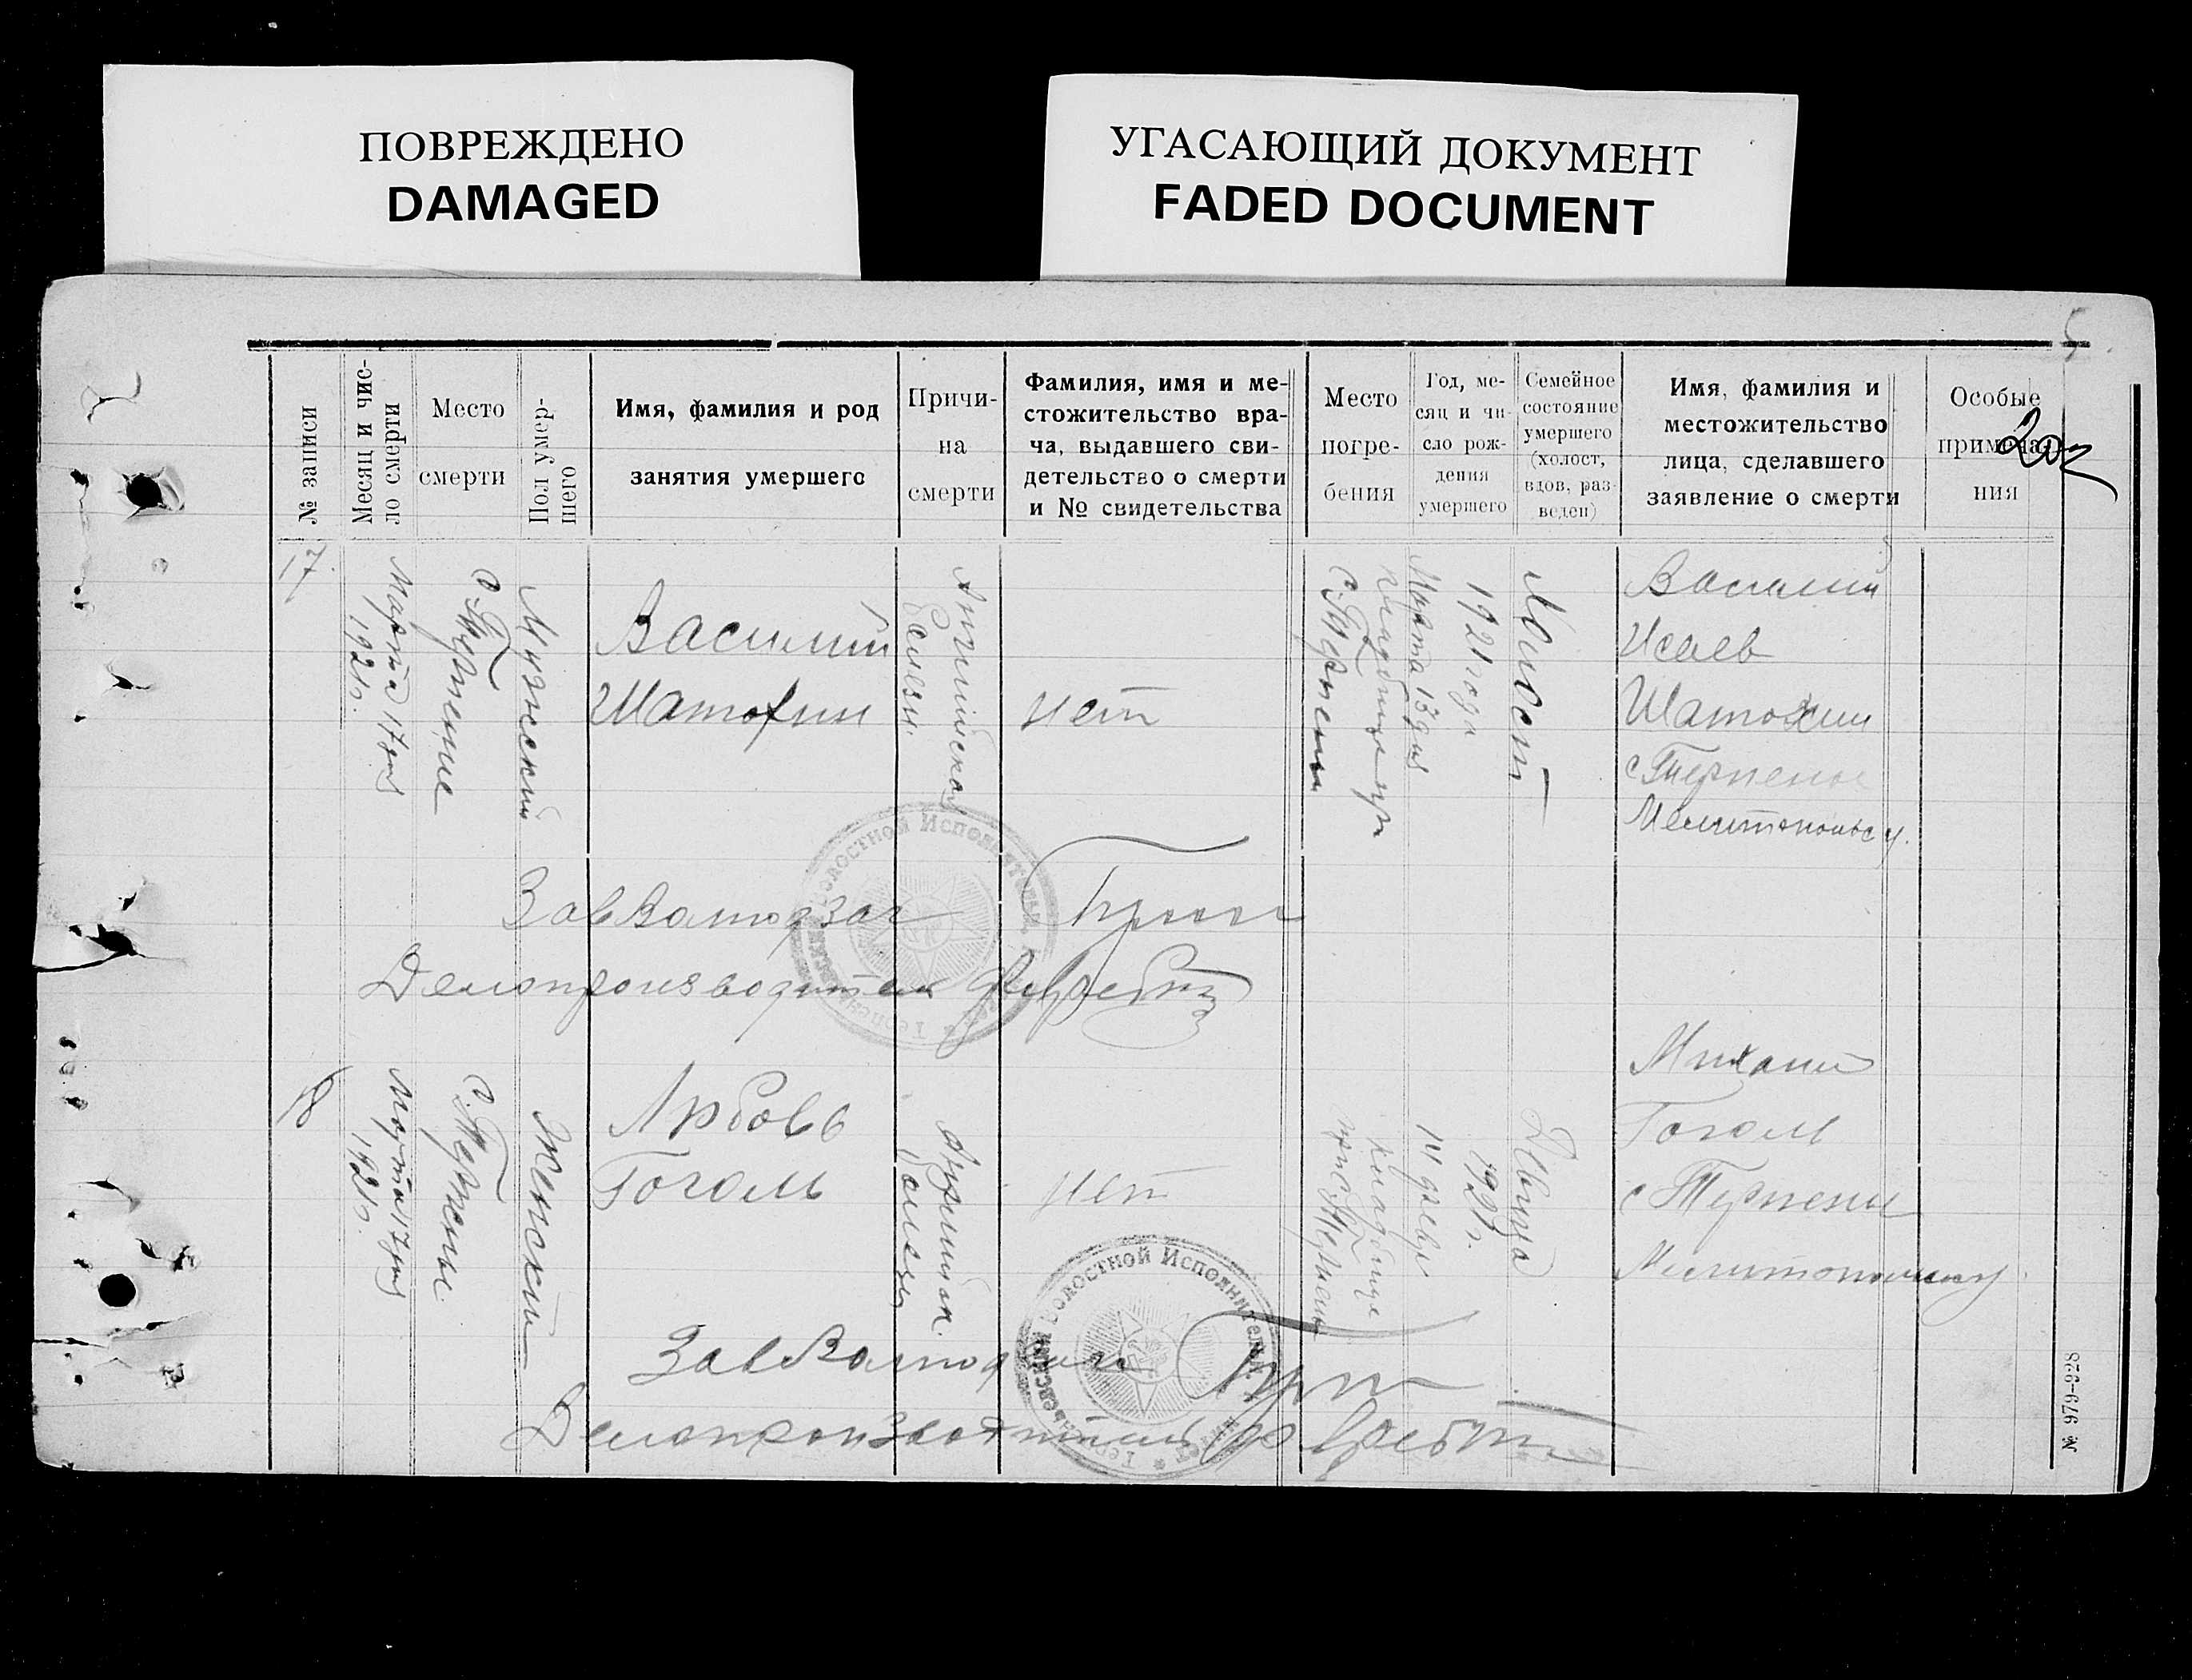 ПОВРЕЖДЕНО
DAMAGED
УГАСАЮЩИЙ ДОКУМЕНТ
FADED DOCUMENT
5
202
№ записи
Месяц и чис-
ло смерти
Место
смерти
Пол умер-
шего
Имя, фамилия и род
занятия умершего
Причи-
на
смерти
Фамилия, имя и ме-
стожительство вра-
ча, выдавшего сви-
детельство о смерти
и № свидетельства
Место
погре-
бения
Год, ме-
сяц и чи-
сло рож-
дения
умершего
Семейное
состояние
умершего
(холост,
вдов, раз-
веден)
Имя, фамилия и
местожительство
лица, сделавшего
заявление о смерти
Особые
примеча-
ния
17
Марта 17 дня
1921 г.
с. Терпение
Мужский
Василий
Шатохин
нет
кладбище при
с. Терпении
1921 года
Марта 13 дня
Холост
Василий
Исаев
Шатохин
с Терпение
Мелитопольс у.
Делопроизводитель
18
Марта 17 дня
1921 г.
с. Терпение
Женский
Любовь
Гоголь
нет
кладбище
при с. Терпении
1921 г.
Девица
Михаил
Гоголь
с Терпении
Делопроизводитель
Волостной Исполнительн.
Волостной Исполнительн.
№ 979-928